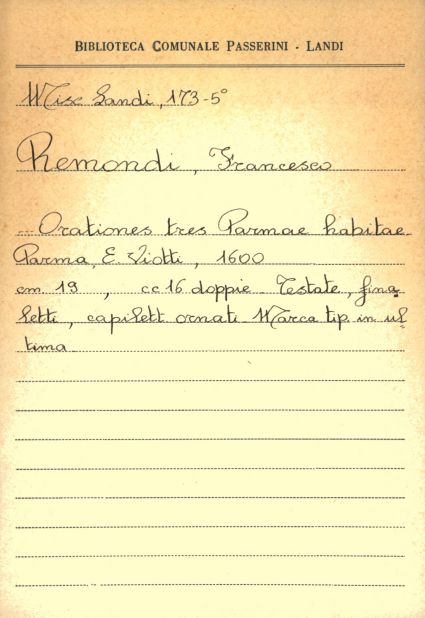 BIBLIOTECA COMUNALE PASSERINI - LANDI
Misc Landi, 173-5°
Remondi, Francesco
Orationes tres Parmae habitae.
Parma, E. Viotti, 1600
cm. 19, cc 16 doppie. Testate, fina-
letti, capilett. ornati. Marca tip. in ul-
tima